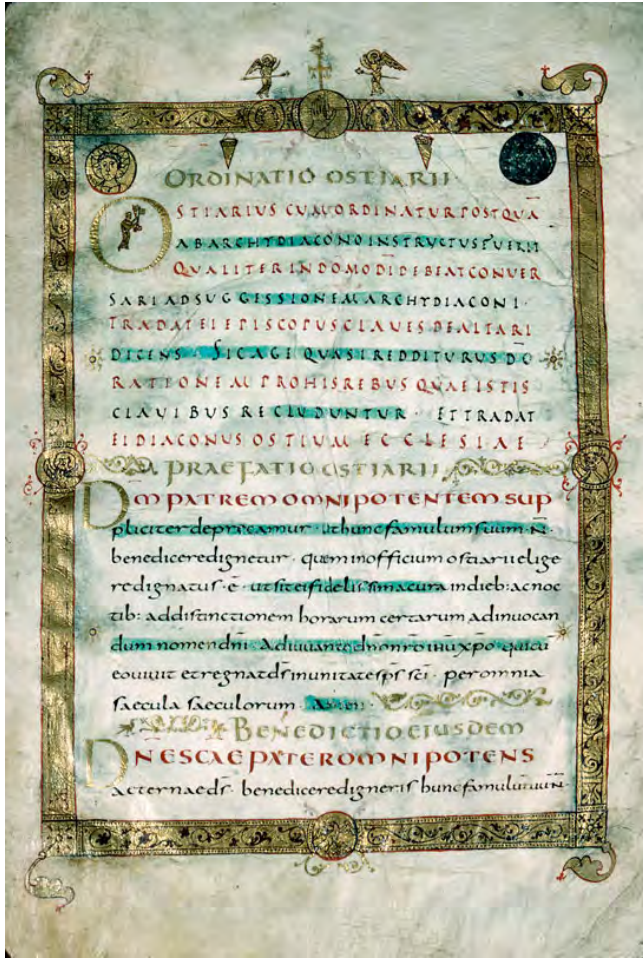 ORDINATIO OSTIARII
OSTIARIUS CUM ORDINATUR POSTQUĀ
AB ARCHYDIACONO INSTRUCTUS FUERIT
QUALITER IN DOMO DĪ DEBEAT CONVER
SARI AD SUGGESSIONEM ARCHYDIACONI ·
TRADAT EI EPISCOPUS CLAVES DE ALTARI
DICENS · SIC AGE QUASI REDDITURUS DŌ
RATIONEM PRO HIS REBUS QUAE ISTIS
CLAVIBUS RECLUDUNTUR · ET TRADAT
EI DIACONUS OSTIUM ECCLESIAE ·
PRAEFATIO OSTIARII
DM PATREM OMNIPOTENTEM SUP
pliciter deprecamur · ut hunc famulum suum · N̄ ·
benedicere dignetur · quem in officium ostiarii elige
re dignatus · ē · ut sit ei fidelissima cura in dieb: ac noc
tib: ad distinctionem horarum certarum ad invocan
dum nomen dnī · Adiuvante dno nro ihu xpo · qui cū
eo vivit et regnat ds in unitate sps sci · per omnia
saecula saeculorum · Amen ·
BENEDICTIO EIUSDEM
DNE SCAE PATER OMNIPOTENS
aeternae ds · benedicere digneris hunc famulū tuū · N̄ ·